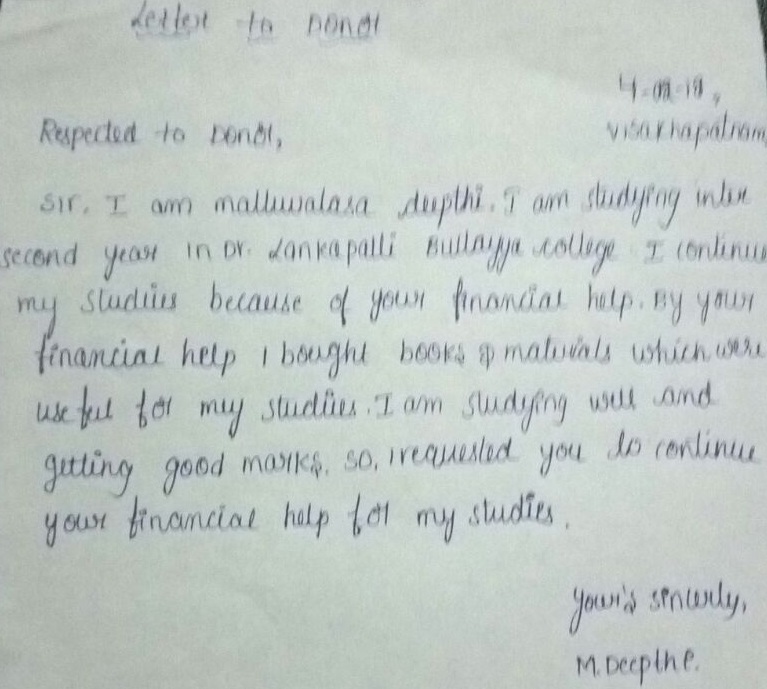 Letter to Donor
4-02-18,
Respected to Donor,
visakhapatnam
Sir. I am malluvalasa deepthi. I am studying inter
second year in Dr. Lankapalli Bullayya college I continue
my studies because of your financial help. By your
financial help I bought books & materials which were
useful for my studies. I am studying well and
getting good marks. so, i requested you to continue
your financial help for my studies.
your's sincerly,
M. Deepthi.